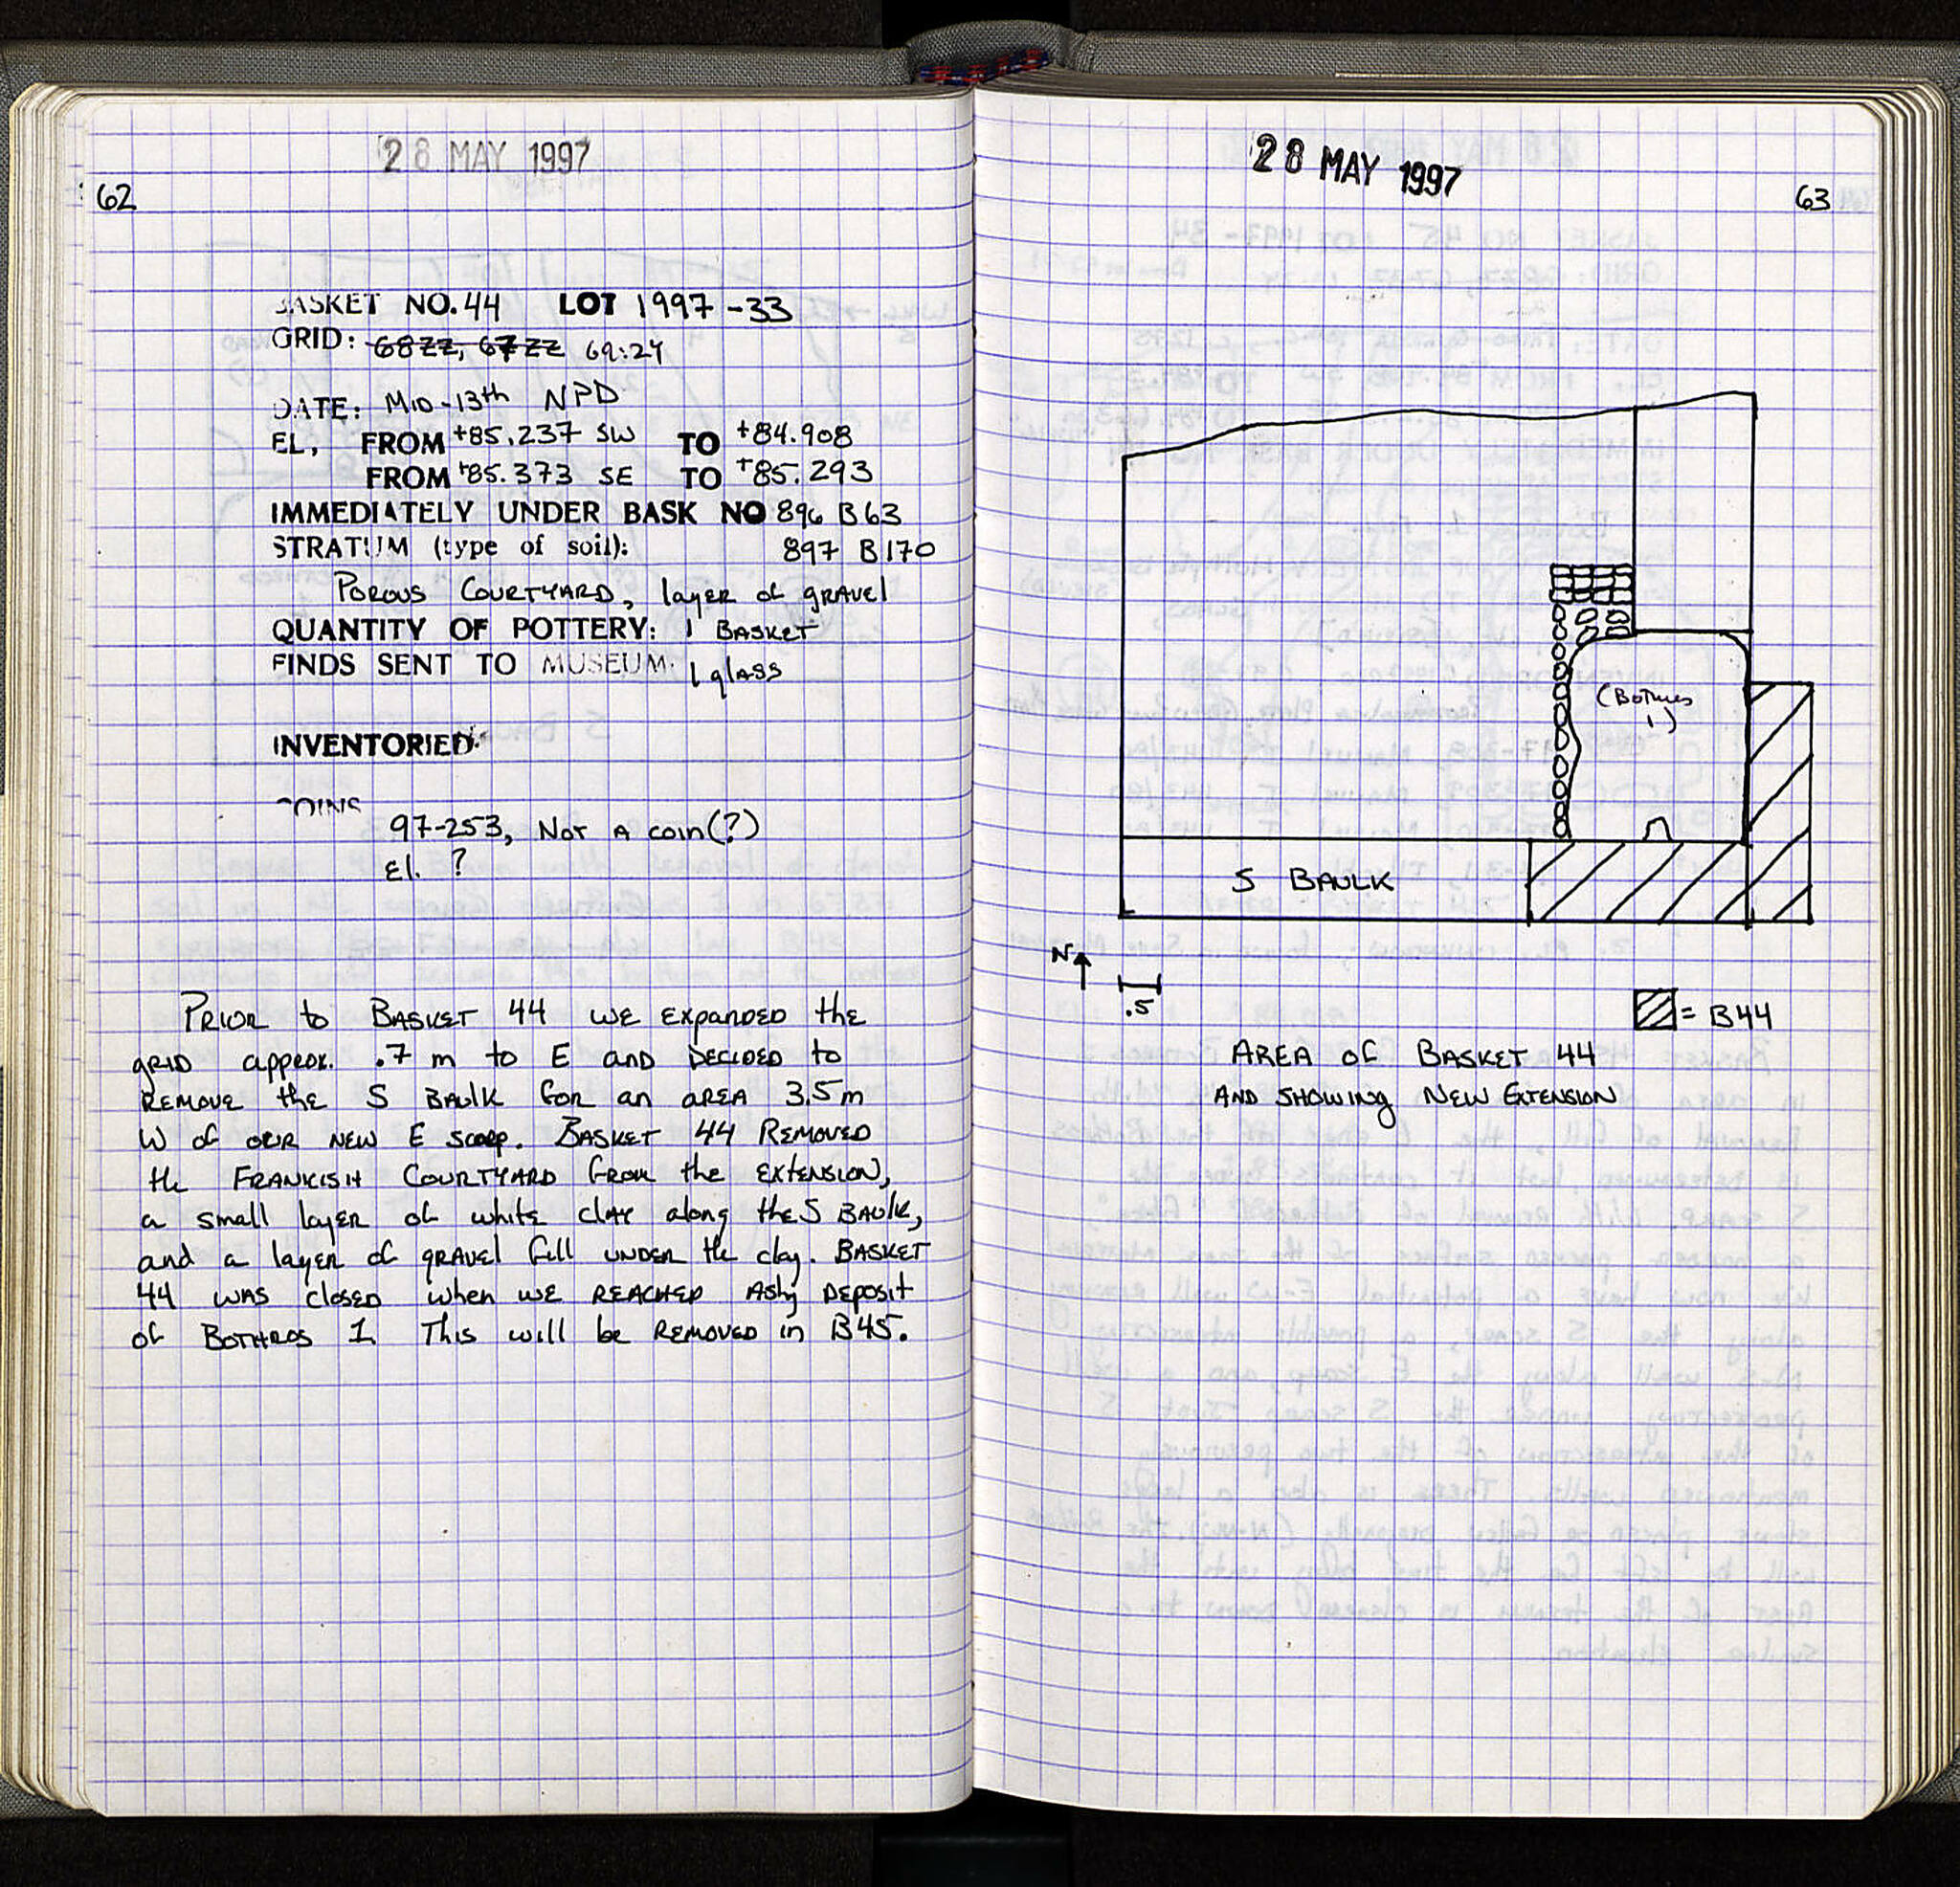 28 MAY 1997
62
BASKET NO. 44 LOT 1997-33
GRID: 68ZZ, 67ZZ 69:24
DATE: MID-13th NPD
EL, FROM +85.237 SW TO +84.908
FROM +85.373 SE TO +85.293
IMMEDIATELY UNDER BASK NO 896 B63
STRATUM (type of soil): 897 B170
POROUS COURTYARD, layer of gravel
QUANTITY OF POTTERY: 1 BASKET
FINDS SENT TO MUSEUM: 1 glass
INVENTORIED:
COINS
97-253, NOT A coin(?)
El. ?
PRIOR to BASKET 44 we expanded the
grid approx. .7 m to E and DECIDED to
REMOVE the S BAULK for an AREA 3.5 m
W of our NEW E scarp. BASKET 44 REMOVED
the FRANKISH COURTYARD from the EXTENSION,
a small layer of white clay along the S BAULK,
and a layer of gravel fill UNDER the clay. BASKET
44 WAS closed when we REACHED Ashy DEPOSIT
of BOTHROS 1. This will be REMOVED in B45.
28 MAY 1997
63
(Bothros
1)
S BAULK
N
.5
= B44
AREA of BASKET 44
AND SHOWING NEW EXTENSION